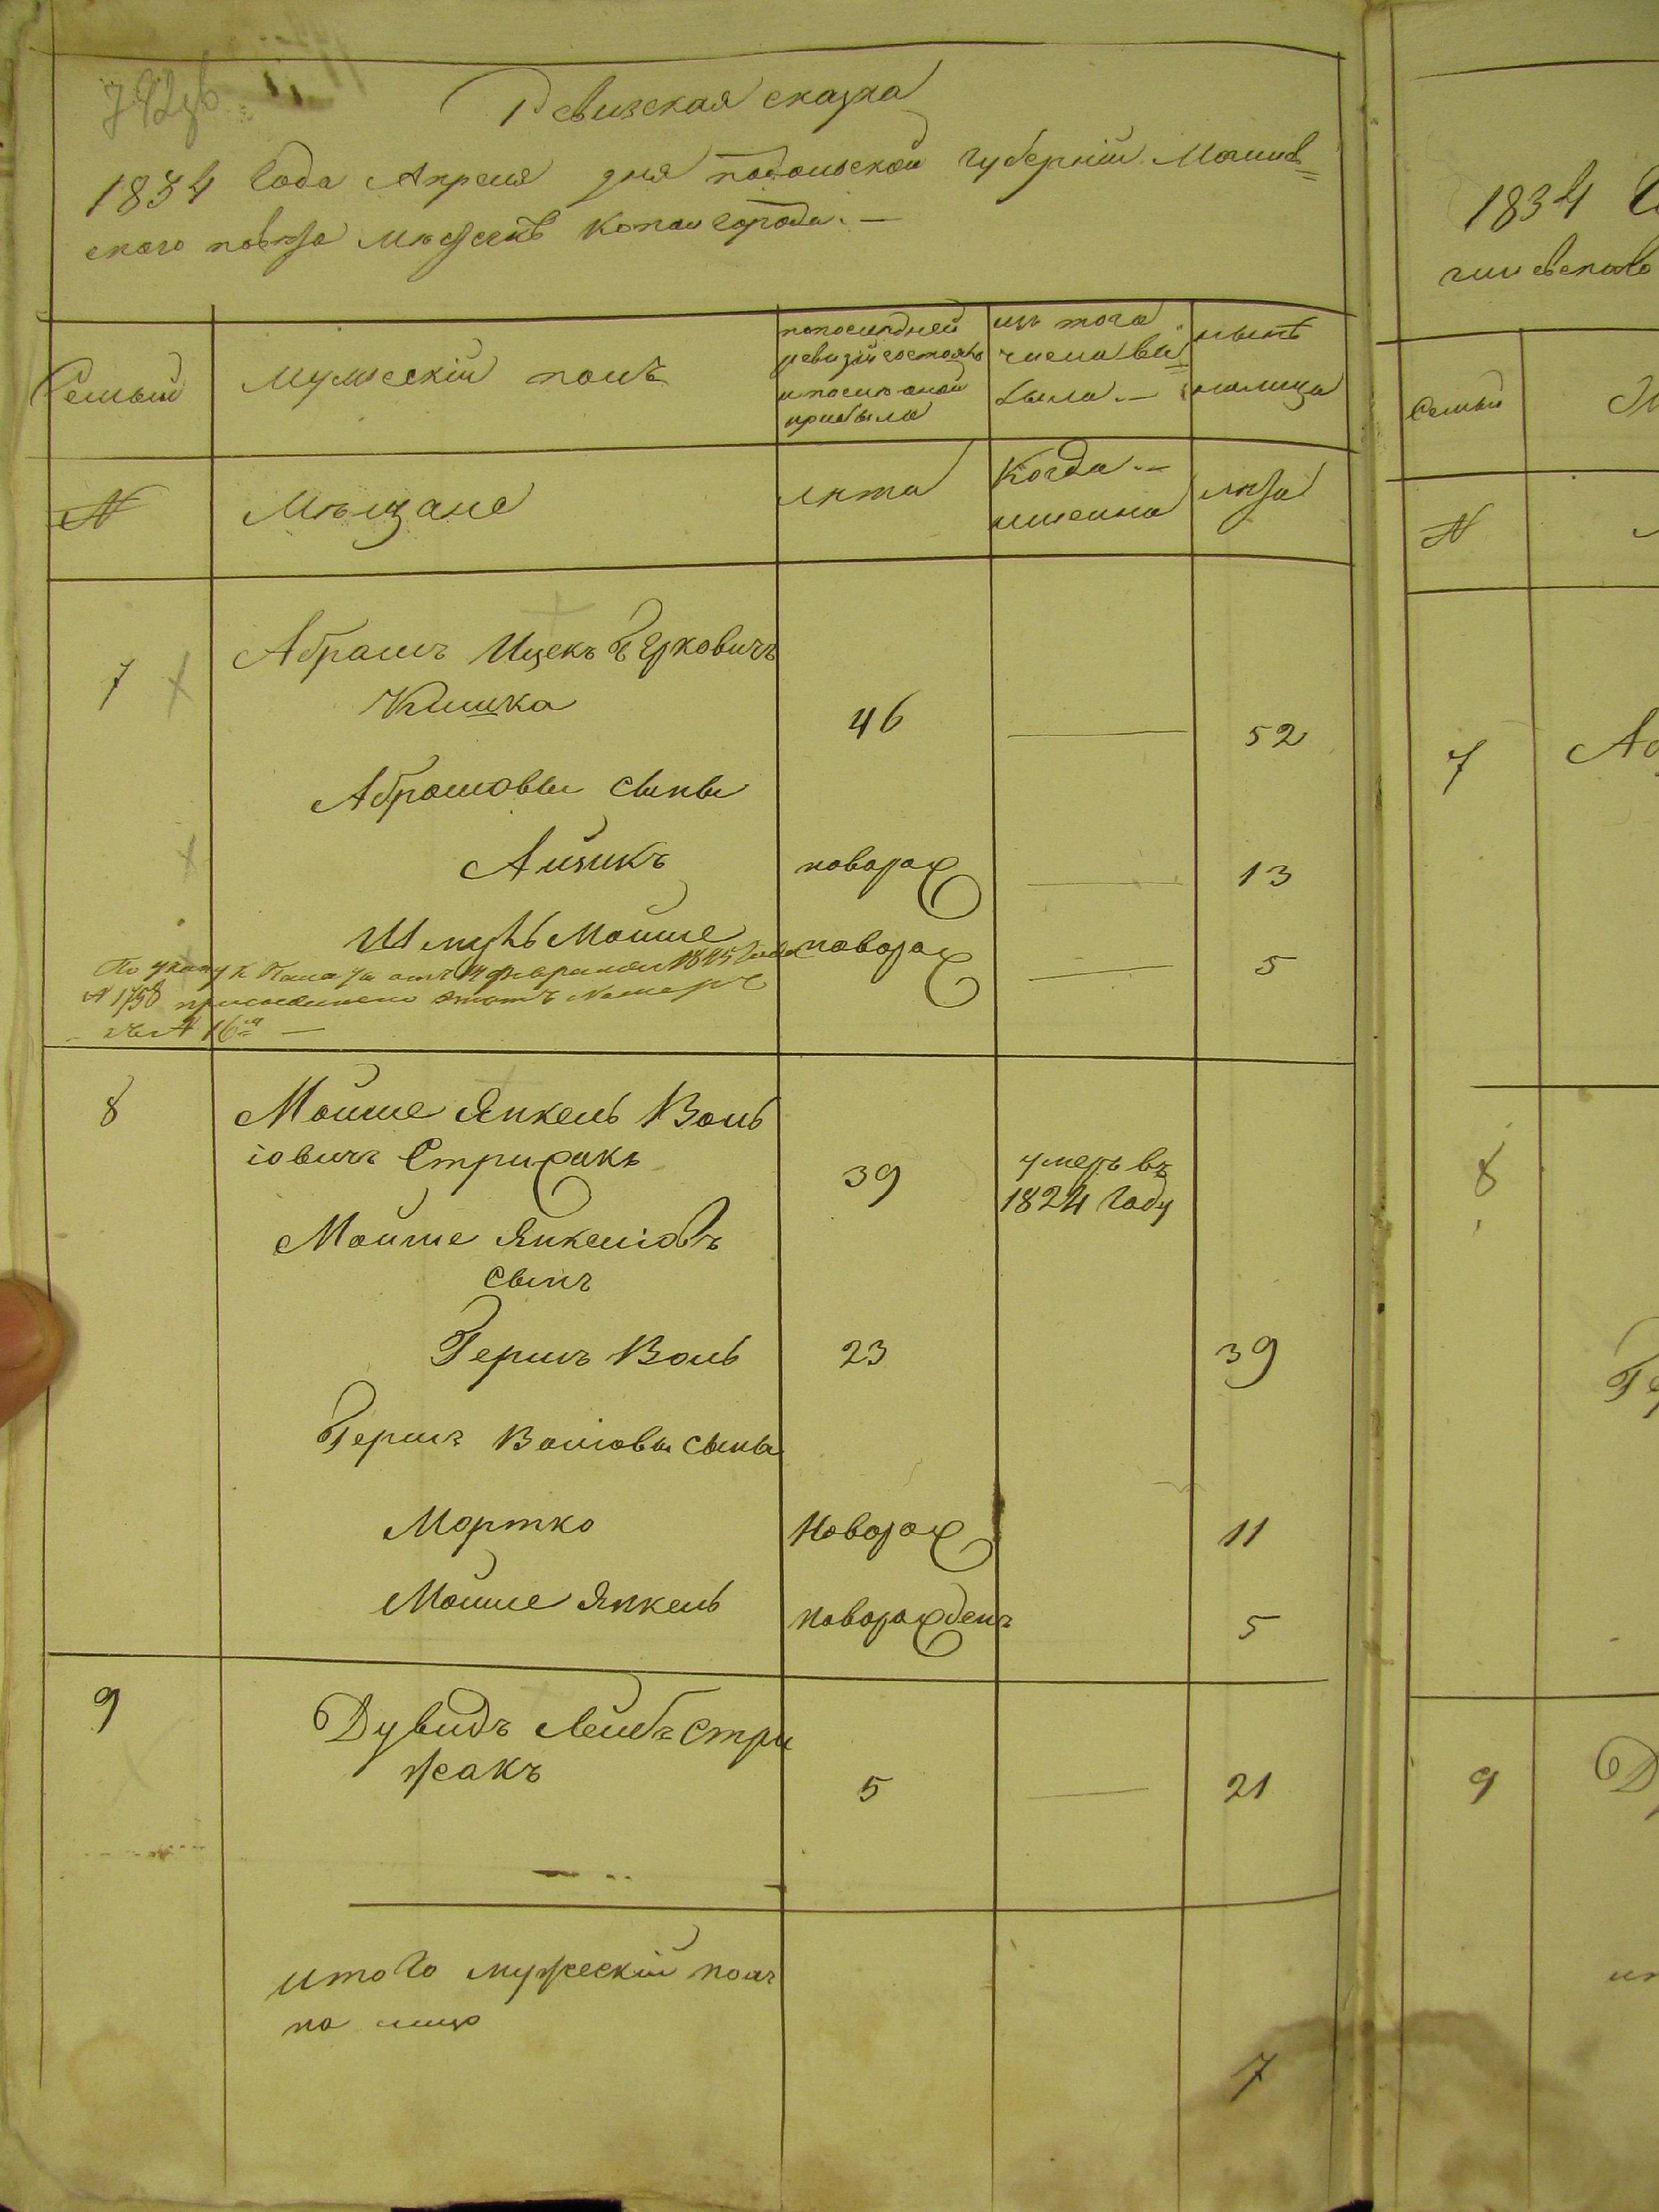 Ревизская сказка
1834 года Апреля дня подольской губернiи Могилев=
ского повѣта мѣстечкѣ Копай города. —
Семьи
Мужескiй полъ
по последней
ревизiи состояло
и после оной
прибыло
изъ того
числа вы=
было. —
нынѣ
налицо
№
Мѣщане
лѣта
Когда —
именно
лѣта
7
Абрамъ Ицекъ Берковичъ
Кишка
46
52
Абрамовы сыны
Айзикъ
новорож
13
Шмуль Мойше
новорож
5
По указу К Палаты отъ 14 февраля 1845 года
№ 1758 присоединено этотъ номеръ
къ № 16му —
8
Мойше Янкель Воль
iовичъ Стрижакъ
39
умеръ въ
1824 году
Мойше Янкелiовъ
сынъ
Гершъ Воль
23
39
Гершъ Волiовы сыны
Мортко
Новорож
11
Мойше Янкель
новорожденъ
5
9
Дувидъ Лейбъ Стри
жакъ
5
21
итого мужескiй полъ
на лицо
7
1834
Семьи
№
7
8
9